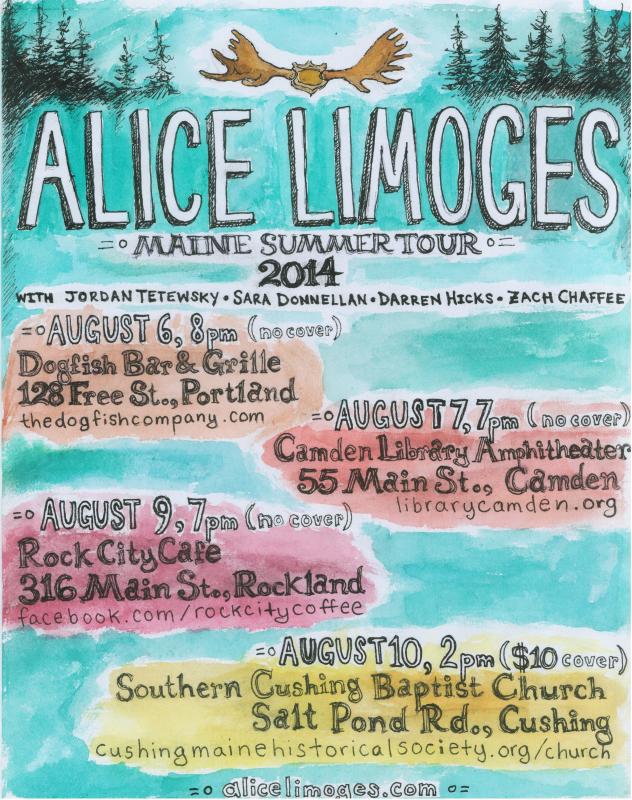 ALICE LIMOGES
MAINE SUMMER TOUR
2014
WITH JORDAN TETEWSKY • SARA DONNELLAN • DARREN HICKS • ZACH CHAFFEE
AUGUST 6, 8pm (no cover)
Dogfish Bar & Grille
128 Free St., Portland
thedogfishcompany.com
AUGUST 7, 7pm (no cover)
Camden Library Amphitheater
55 Main St., Camden
librarycamden.org
AUGUST 9, 7pm (no cover)
Rock City Cafe
316 Main St., Rockland
facebook.com/rockcitycoffee
AUGUST 10, 2pm ($10 cover)
Southern Cushing Baptist Church
Salt Pond Rd., Cushing
cushingmainehistoricalsociety.org/church
alicelimoges.com